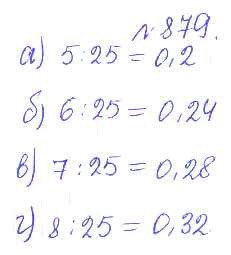 № 879.
а) 5 : 25 = 0,2
б) 6 : 25 = 0,24
в) 7 : 25 = 0,28
г) 8 : 25 = 0,32